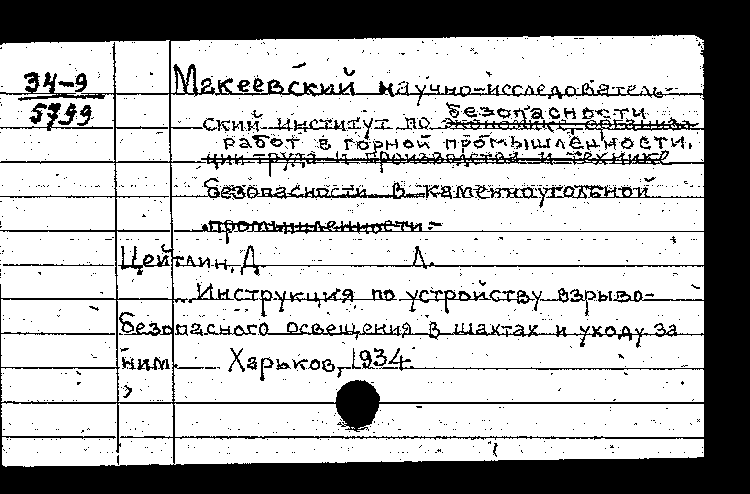 34-9
5799
Макеевский научно-исследователь-
безопасности
ский институт по экономике, организа-
работ в горной промышленности.
ции труда и производства и технике
безопасности в каменноугольной
промышленности.-
Цейтлин, Д. Л.
...Инструкция по устройству взрыво-
безопасного освещения в шахтах и уходу за
ним. Харьков, 1934.